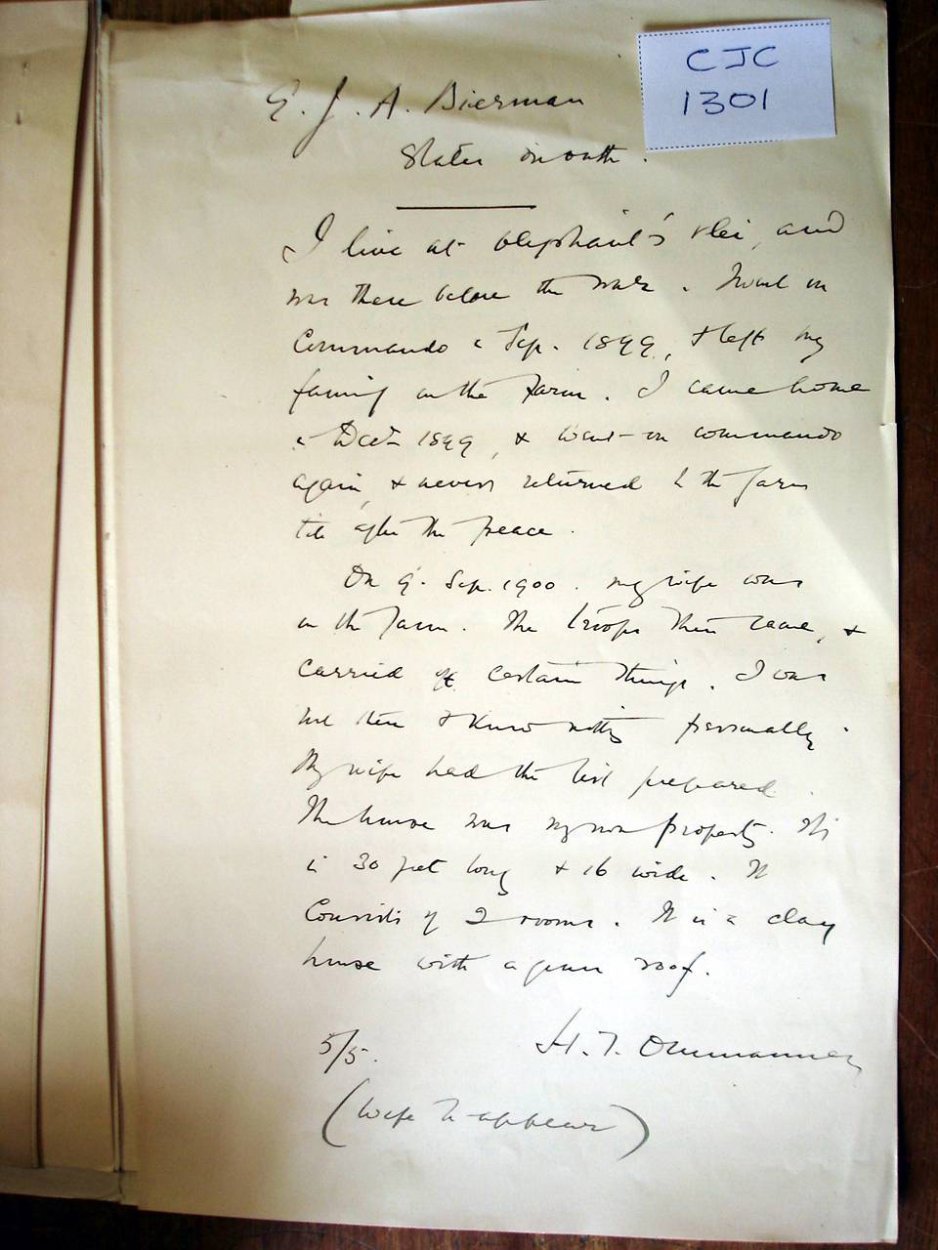 CJC
1301
G. J. A. Bierman
States on oath.
I live at Olephant's vlei, and
was there before the war. I went on
Commando in Sep. 1899, & left my
family on the farm. I came home
in Dec 1899, & went on commando
again, & never returned to the farm
till after the peace.
On 9. Sep. 1900. my wife was
on the farm. The troops then came, &
carried off certain things. I was
not there & know nothing personally.
My wife had the list prepared.
The house was my own property. It
is 30 feet long & 16 wide. It
Consists of 2 rooms. It is a clay
house with a green roof.
5/5.
H. T. Ommanney
(Wife to appear)